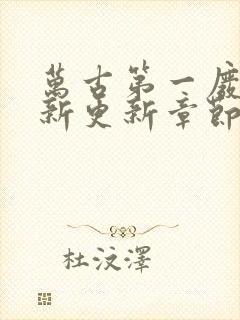 萬古第一廢
新更新章節
杜汶澤